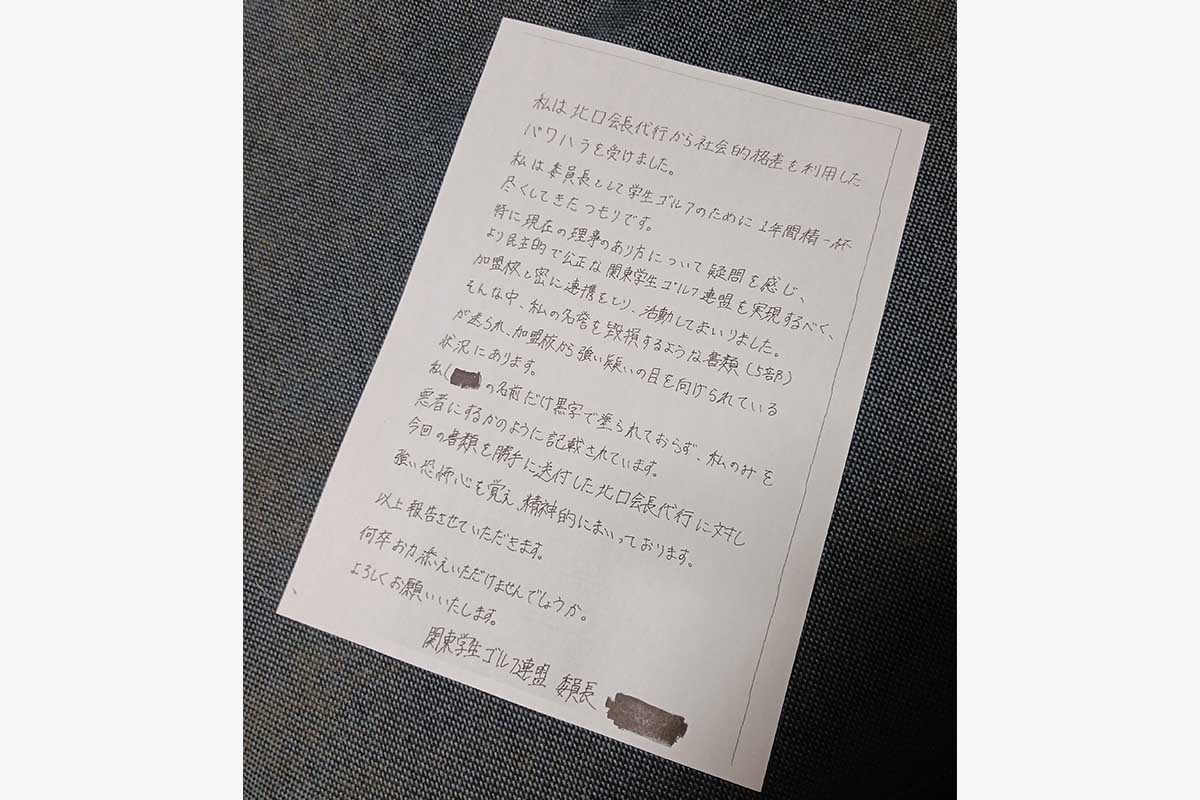 私は北口会長代行から社会的格差を利用した
パワハラを受けました。
私は委員長として学生ゴルフのために1年間精一杯
尽くしてきたつもりです。
特に現在の理事のあり方について疑問を感じ、
より民主的で公正な関東学生ゴルフ連盟を実現するべく、
加盟校と密に連携をとり、活動してまいりました。
そんな中、私の名誉を毀損するような書類(5部)
が送られ、加盟校から強い疑いの目を向けられている
状況にあります。
私( )の名前だけ黒字で塗られておらず、私のみを
悪者にするかのように記載されています。
今回の書類を勝手に送付した北口会長代行に対し
強い恐怖心を覚え、精神的にまいっております。
以上報告させていただきます。
何卒お力添えいただけませんでしょうか。
よろしくお願いいたします。
関東学生ゴルフ連盟 委員長